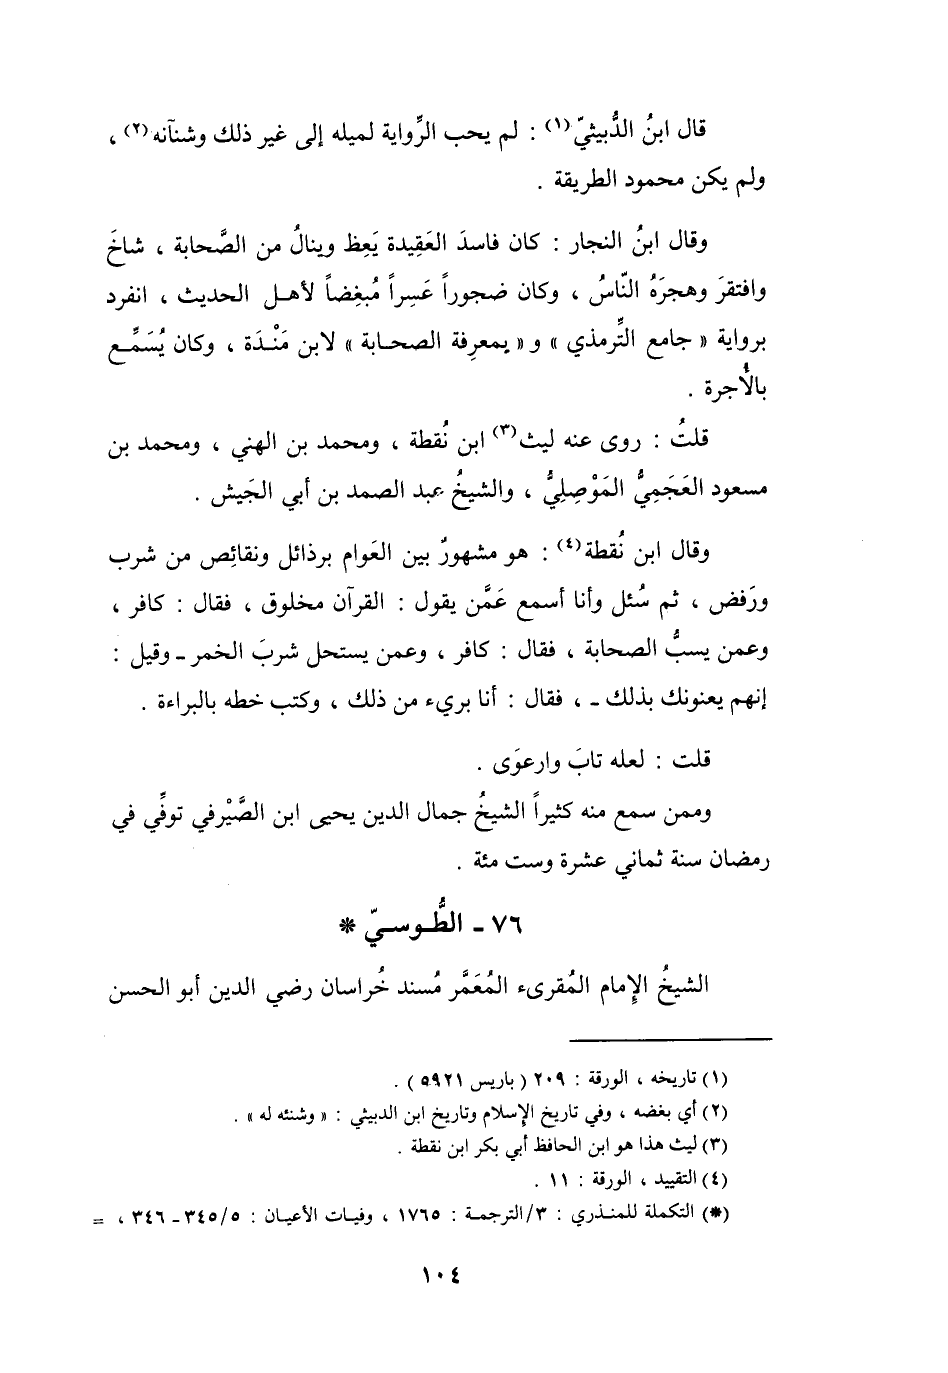 قال ابنُ الدُّبيثيّ(١) : لم يحب الرِّواية لميله إلى غير ذلك وشنآنه(٢) ،
ولم يكن محمود الطريقة .
وقال ابنُ النجار : كان فاسدَ العَقِيدة يَعِظ وينالُ من الصَّحابة ، شاخَ
وافتقرَ وهجرَهُ النّاسُ ، وكان ضجوراً عَسِراً مُبغِضاً لأهل الحديث ، انفرد
برواية « جامع التِّرمذي » و « بمعرِفة الصحابة » لابن مَنْدَة ، وكان يُسَمِّع
بالأُجرة .
قلتُ : روى عنه ليث(٣) ابن نُقطة ، ومحمد بن الهني ، ومحمد بن
مسعود العَجَمِيُّ المَوْصِلِيُّ ، والشيخُ عبد الصمد بن أبي الجَيش .
وقال ابن نُقطة(٤) : هو مشهورٌ بين العَوام برذائل ونقائِص من شرب
ورَفض ، ثم سُئل وأنا أسمع عَمَّن يقول : القرآن مخلوق ، فقال : كافر ،
وعمن يسبُّ الصحابة ، فقال : كافر ، وعمن يستحل شربَ الخمر ـ وقيل :
إنهم يعنونك بذلك ـ ، فقال : أنا بريء من ذلك ، وكتب خطه بالبراءة .
قلت : لعله تابَ وارعوَى .
وممن سمع منه كثيراً الشيخُ جمال الدين يحيى ابن الصَّيْرفي توفِّي في
رمضان سنة ثماني عشرة وست مئة .
٧٦ ـ الطُّوسيّ *
الشيخُ الإمام المُقرىء المُعَمَّر مُسند خُراسان رضي الدين أبو الحسن
(١) تاريخه ، الورقة : ٢٠٩ ( باريس ٥٩٢١ ) .
(٢) أي بغضه ، وفي تاريخ الإسلام وتاريخ ابن الدبيثي : « وشنئه له » .
(٣) ليث هذا هو ابن الحافظ أبي بكر ابن نقطة .
(٤) التقييد ، الورقة : ١١ .
(*) التكملة للمنذري : ٣/الترجمة : ١٧٦٥ ، وفيات الأعيان : ٥/ ٣٤٥ ـ ٣٤٦ ، =
١٠٤